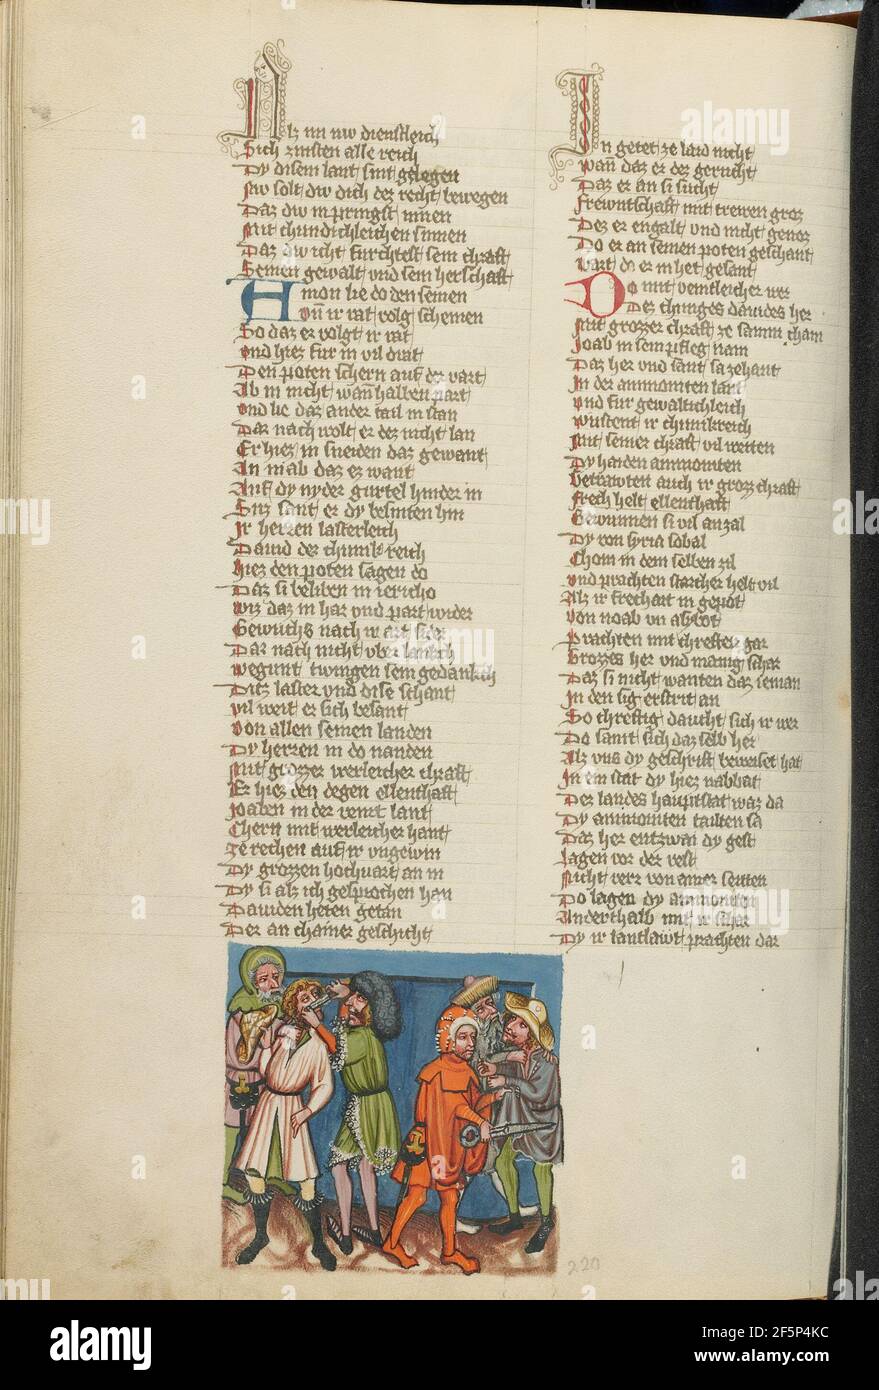 Alz im nw dienstleich
Sich zinsten alle reich
Dy disem lant sint gelegen
Nw solt dw dich des recht bewegen
Daz dw in pringst innen
Mit chundichleichen sinnen
Daz dw icht furchtest sein chraft
Seinen gewalt vnd sein herschaft
Amon lie do den seinen
Vnd ir rat volg scheinen
So daz er volgt ir rat
vnd hiez fur in vil drat
Den poten schern auf der vart
Ab in nicht wan halben part
vnd lie daz ander tail in stan
Dar nach wolt er des nicht lan
Er hiez in sneiden daz gewant
In in ab daz ez want
Auf dy nyder gurtel hinder in
Suz sent er dy besniten hin
Ir herren lasterleich
Dauid der chunik reich
Hiez den poten sagen do
Daz si beliben in iericho
Vnz daz in har vnd part wider
Gewuchs nach ir art sider
Dar nach nicht vber lankch
Wegunt twingen sein gedankch
Ditz laster vnd dise schant
vil weit er sich besant
von allen seinen landen
Dy herren in do nanden
Mit grozzer werleicher chraft
Er hiez den degen ellenthaft
Joaben in der veint lant
Chern mit werleicher hant
Ze rechen auf ir vngewin
Dy grozzen hochuart an in
Dy si alz ich gesprochen han
Dauiden heten getan
Der an chainer geschicht
In getet ze laid nicht
wan daz er des gerucht
Daz er an si sucht
Frewntschaft mit trewen groz
Des er engalt vnd nicht genoz
Do er an seinen poten geschant
Wart do er in het gesant
Do mit veintleicher wer
Des chuniges dauides her
Mit grozzer chraft ze samm cham
Joab in sein pfleg nam
Daz her vnd sant sa zehant
In der ammoniten lant
vnd fur gewaltichleich
Wustent ir chunikreich
Mit seiner chraft vil weiten
Dy haiden ammoniten
Betrawten auch ir grozz chraft
Frech helt ellenthaft
Gewunnen si vil an zal
Dy von syria sobal
Chom in dem selben zil
vnd prachten starcher helt vil
Alz ir frechait in gepot
von
Prachten mit chreften gar
Grozzes her vnd manig schar
Daz si nicht wanten daz ieman
In den sig erstrit an
So chreftig daucht sich ir wer
Do samt sich daz selb her
Alz vns dy geschrift beweiset hat
In ein stat dy hiez nabbat
Des landes hauptstat waz da
Dy ammoniten tailten sa
Daz her entzwai dy gest
Lagen vor der vest
Nicht verr von ainer seitten
Do lagen dy ammoniten
Anderthalb mit ir schar
Dy ir lantlawt prachten dar
220
alamy
Image ID: 2F5P4KC
www.alamy.com